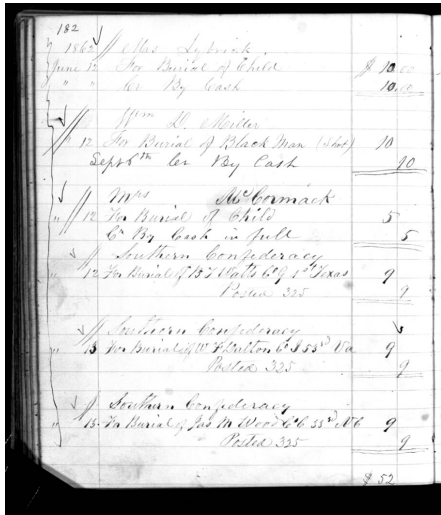 182
1862 // Mrs Lybrick
June 12 For Burial of Child $ 10.00
" " Cr By Cash 10.00
// Wm D. Miller
" 12 For Burial of Black Man (Shot) 10
Sept 6th Cr By Cash 10
// Mrs McCormack
" 12 For Burial of Child 5
Cr By Cash in full 5
// Southern Confederacy
12 For Burial of B T Watts Co G 1st Texas 9
Posted 325 9
// Southern Confederacy
" 13 For Burial of W Dalton Co 53rd Va 9
Posted 325 9
// Southern Confederacy
" 13 For Burial of Jas M Wood Co C 35th NC 9
Posted 325 9
$ 52